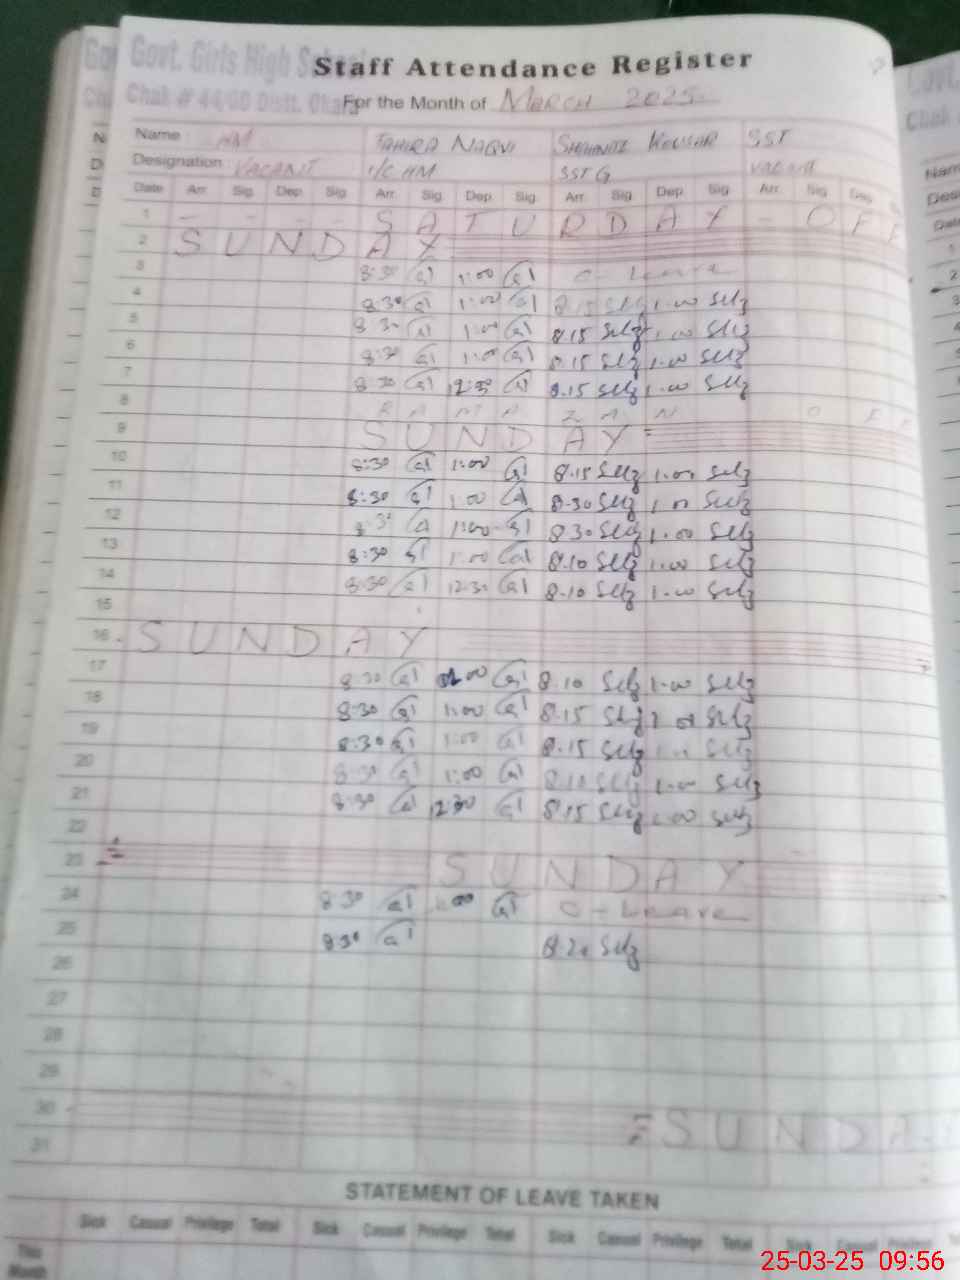 Govt. Girls High School
Staff Attendance Register
Chak # 44/GD Distt. Okara
For the Month of MARCH 2025
Name : HM TAHIRA NAQVI SHAHNAZ KOUSAR SST
Designation : VACANT I/C HM SST G VACANT
Date Arr. Sig. Dep. Sig. Arr. Sig. Dep. Sig. Arr. Sig. Dep. Sig. Arr. Sig. Dep.
1 - - - - S A T U R D A Y - O F F
2 S U N D A Y
3 8:30 1:00 C - Leave
4 8:30 1:00 8.15 1.00
5 8:30 1:00 8.15 1.00
6 8:30 1:00 8.15 1.00
7 8:30 12:30 8.15 1.00
8 R A M Z A N O F F
9 S U N D A Y
10 8:30 1:00 8.15 1.00
11 8:30 1:00 8.30 1.00
12 8:30 1:00 8.30 1.00
13 8:30 1:00 8.10 1.00
14 8:30 12:30 8.10 1.00
15
16 S U N D A Y
17 8:30 1:00 8.10 1.00
18 8:30 1:00 8.15 1.00
19 8:30 1:00 8.15 1.00
20 8:30 1:00 8.10 1.00
21 8:30 12:30 8.15 1.00
22
23 S U N D A Y
24 8:30 1:00 C - Leave
25 8:30 8.20
26
27
28
29
30 S U N D A
31
STATEMENT OF LEAVE TAKEN
Sick Casual Privilege Total Sick Casual Privilege Total Sick Casual Privilege Total Sick Casual Privilege
This Month
25-03-25 09:56